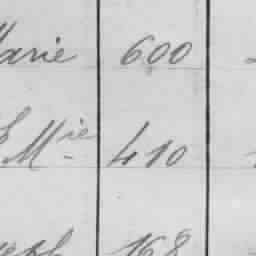 Marie 600
Mie 410
168